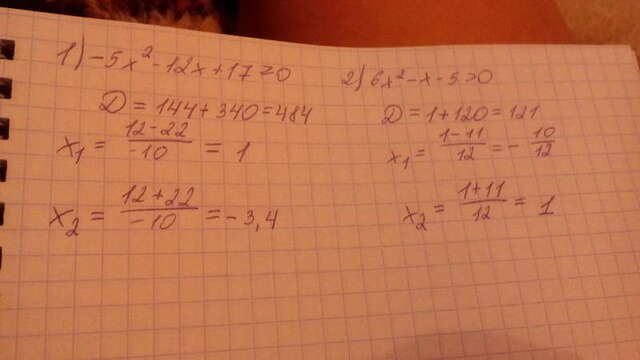 1) -5x² - 12x + 17 > 0
D = 144 + 340 = 484
x₁ = (12 - 22)/(-10) = 1
x₂ = (12 + 22)/(-10) = -3,4
2) 6x² - x - 5 > 0
D = 1 + 120 = 121
x₁ = (1 - 11)/12 = -10/12
x₂ = (1 + 11)/12 = 1